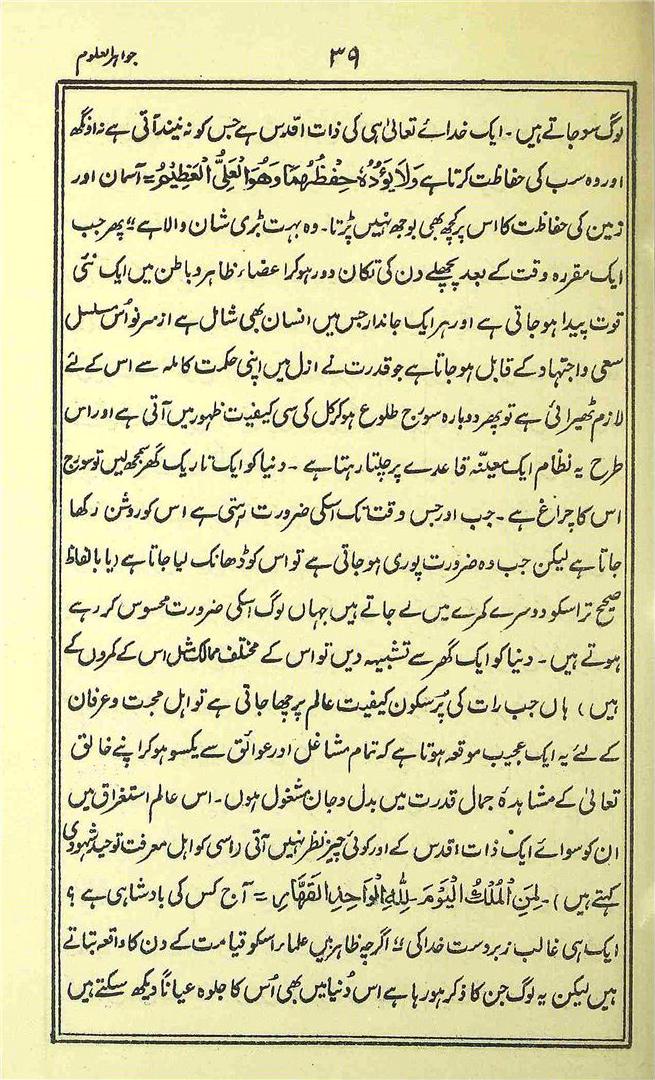 جواہر العلوم
۳۹
لوگ سو جاتے ہیں ۔ ایک خدائے تعالیٰ ہی کی ذات اقدس ہے جس کو نہ نیند آتی ہے نہ اونگھ
اور وہ سب کی حفاظت کرتا ہے وَلَا یَؤُدُہٗ حِفْظُہُمَا وَھُوَ الْعَلِیُّ الْعَظِیْمُ = آسمان اور
زمین کی حفاظت کا اس پر کچھ بھی بوجھ نہیں پڑتا ۔ وہ بہت بڑی شان والا ہے ״ پھر جب
ایک مقررہ وقت کے بعد پچھلے دن کی تکان دور ہو کر اعضاء ظاہر و باطن میں ایک نئی
قوت پیدا ہو جاتی ہے اور ہر ایک جاندار جس میں انسان بھی شامل ہے از سر نو اُس مسلسل
سعی و اجتہاد کے قابل ہو جاتا ہے جو قدرت نے ازل میں اپنی حکمت کاملہ سے اس کے لئے
لازم ٹھیرائی ہے تو پھر دوبارہ سورج طلوع ہو کر کل کی سی کیفیت ظہور میں آتی ہے اور اس
طرح یہ نظام ایک معیّنہ قاعدے پر چلتا رہتا ہے ۔ دنیا کو ایک تاریک گھر سمجھ لیں تو سورج
اس کا چراغ ہے ۔ جب اور جس وقت تک اسکی ضرورت رہتی ہے اس کو روشن رکھا
جاتا ہے لیکن جب وہ ضرورت پوری ہو جاتی ہے تو اس کو ڈھانک لیا جاتا ہے (یا بالفاظ
صحیح تر اسکو دوسرے کمرے میں لے جاتے ہیں جہاں لوگ اسکی ضرورت محسوس کر رہے
ہوتے ہیں ۔ دنیا کو ایک گھر سے تشبیہ دیں تو اس کے مختلف ممالک مثل اس کے کمروں کے
ہیں) ہاں جب رات کی پُر سکون کیفیت عالم پر چھا جاتی ہے تو اہل محبت و عرفان
کے لئے یہ ایک عجیب موقعہ ہوتا ہے کہ تمام مشاغل اور عوائق سے یکسو ہو کر اپنے خالق
تعالیٰ کے مشاہدۂ جمال قدرت میں بدل و جان مشغول ہوں ۔ اس عالم استغراق میں
ان کو سوائے ایک ذات اقدس کے اور کوئی چیز نظر نہیں آتی (اسی کو اہل معرفت توحید شہودی
کہتے ہیں) ۔ لِمَنِ الْمُلْکُ الْیَوْمَ ۔ لِلّٰہِ الْوَاحِدِ الْقَھَّارِ = آج کس کی بادشاہی ہے ؟
ایک ہی غالب زبردست خدا کی ״ اگرچہ ظاہر بیں علماء اسکو قیامت کے دن کا واقعہ بتاتے
ہیں لیکن یہ لوگ جن کا ذکر ہو رہا ہے اس دُنیا میں بھی اُس کا جلوہ عیاناً دیکھ سکتے ہیں